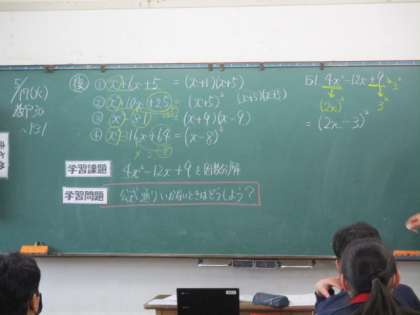 5/19(火)
P31
復
① x²+6x+5 = (x+1)(x+5)
② x²+10x+25 = (x+5)² (x+5)(x+5)
③ x²-81 = (x+9)(x-9)
④ x²-16x+64 = (x-8)²
学習課題 4x²-12x+9を因数分解
学習問題 公式通りいかないときはどうしよう?
例 4x²-12x+9
(2x)² 3²
= (2x-3)²